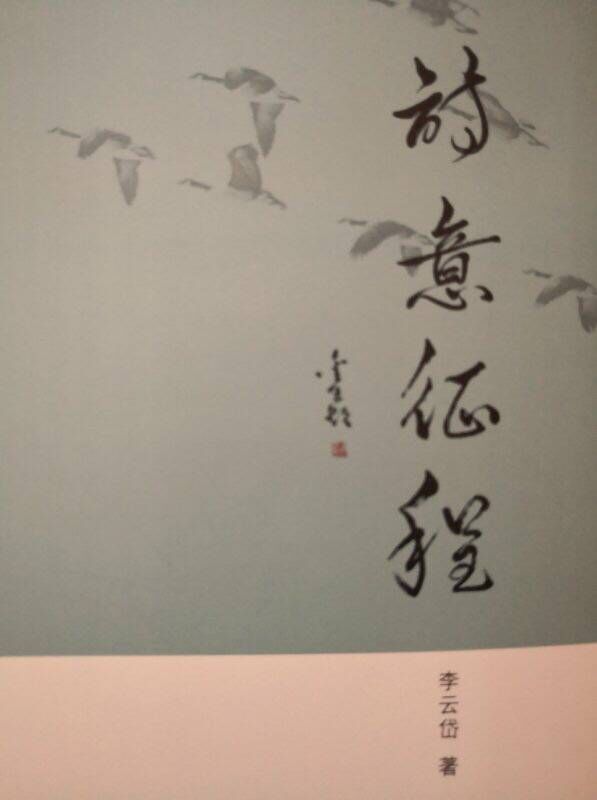 詩意征程
李云岱 著